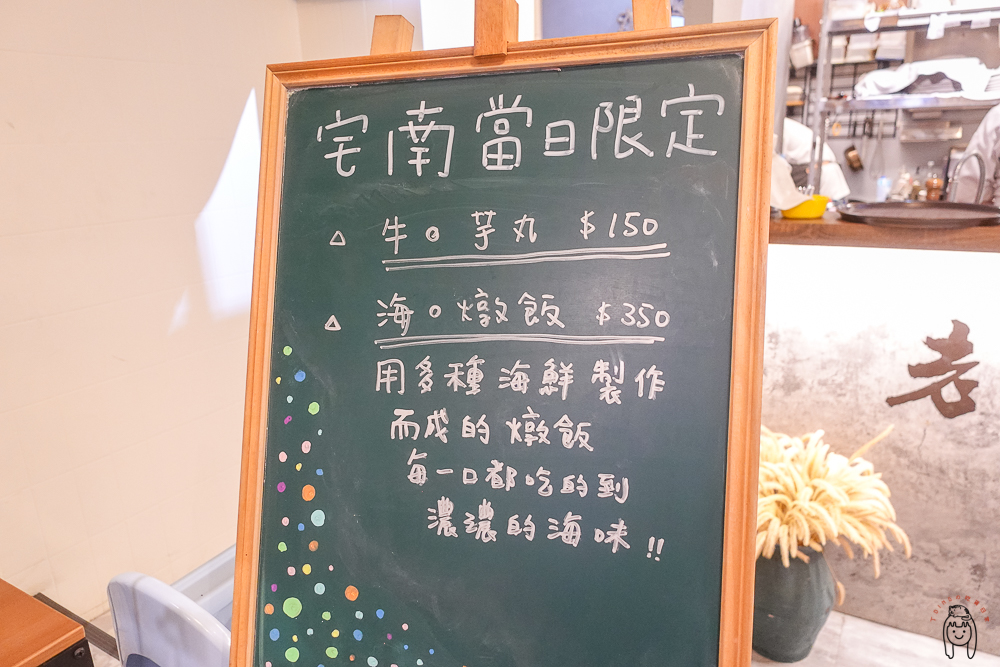 宅南當日限定
△ 牛。芋丸 $150
△ 海。燉飯 $350
用多種海鮮製作
而成的燉飯
每一口都吃的到
濃濃的海味!!
老